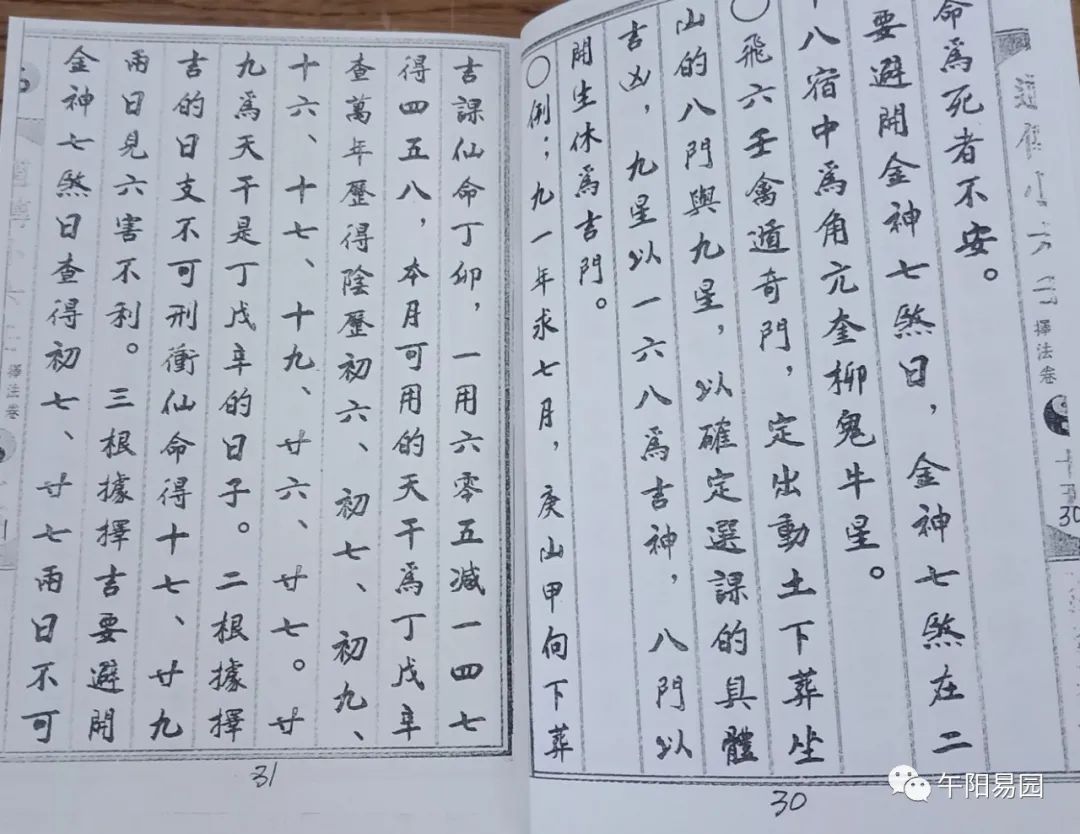 命爲死者不安。
要避開金神七煞日，金神七煞在二
十八宿中爲角亢奎柳鬼牛星。
○飛六壬禽遁奇門，定出動土下葬坐
山的八門與九星，以確定選課的具體
吉凶，九星以一六八爲吉神，八門以
開生休爲吉門。
○例：九一年求七月，庚山甲向下葬
擇法卷
30
30
吉課仙命丁卯，一用六零五減一四七
得四五八，本月可用的天干爲丁戊辛
查萬年歷得陰歷初六、初七、初九、
十六、十七、十九、廿六、廿七。廿
九爲天干是丁戊辛的日子。二根據擇
吉的日支不可刑衝仙命得十七、廿九
兩日見六害不利。三根據擇吉要避開
金神七煞日查得初七、廿七兩日不可
擇法卷
31
午阳易园